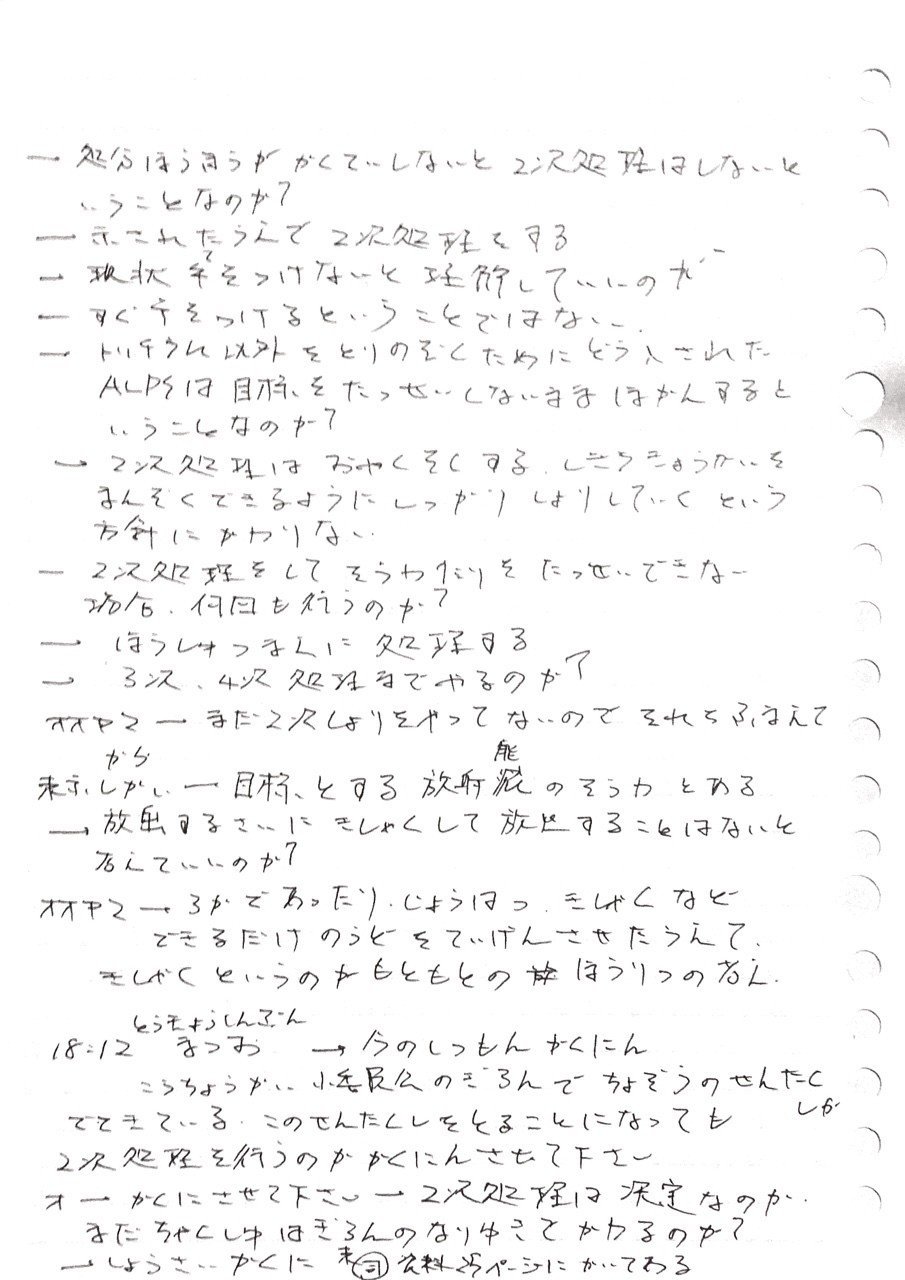 ― 処分ほうほうが かくていしないと 2次処理はしないと
いうことなのか?
― 示されたうえで 2次処理をする
― 現状 手をつけないと 理解していいのか
― すぐ手をつけるということではない
― トリチウム以外をとりのぞくためにどう入された
ALPSは目標をたっせいしないまま ほかんすると
いうことなのか?
→ 2次処理は おやくそくする. しきちきょうかいを
まんぞくできるように しっかり しょりしていく という
方針にかわりない
― 2次処理をして そうわ を たっせいできない
場合、何回も行うのか?
― ほうしゅつまえに 処理する
→ 3次、4次 処理までやるのか?
オオヤマ ― まだ2次しょりをやってないので それをふまえて
から
能
しかし ― 目標とする 放射 のそうわ とある
→ 放出するさいに きしゃくして 放出することはないと
考えていいのか?
オオヤマ ― ろかであったり. じょうはつ. きしゃくなど
できるだけ のうどを ていげんさせたうえで.
きしゃくというのが もともとの ほうりつの考え.
とうきょうしんぶん
18:12 まつお → 今のしつもん かくにん
こうちょうかい 小委員会のぎろんで ちょぞうのせんたく
しが
でてきている. このせんたくしをとることになっても
2次処理を行うのか かくにんさせて下さい
オ ― かくにさせて下さい ― 2次処理は 決定なのか.
まだちゃくしゅはぎろんのなりゆきで かわるのか?
→ しょうさい かくに 資料 25ページに かいてある